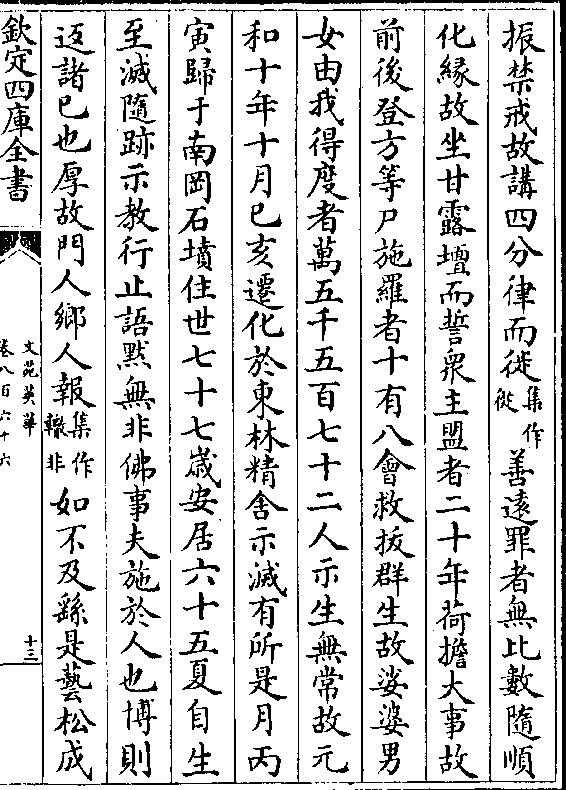 振禁戒故講四分律而徙集作徙善遠罪者無比數隨順
化縁故坐甘露壇而誓衆主盟者二十年荷擔大事故
前後登方等尸施羅者十有八會救拔群生故娑婆男
女由我得度者萬五千五百七十二人示生無常故元
和十年十月己亥遷化於東林精舎示滅有所是月丙
寅歸于南岡石墳住世七十七嵗安居六十五夏自生
至滅隨跡示教行止語黙無非佛事夫施於人也博則
返諸已也厚故門人鄉人報集作轍非如不及繇是藝松成
欽定四庫全書
文苑英華
卷八百六十六
十三